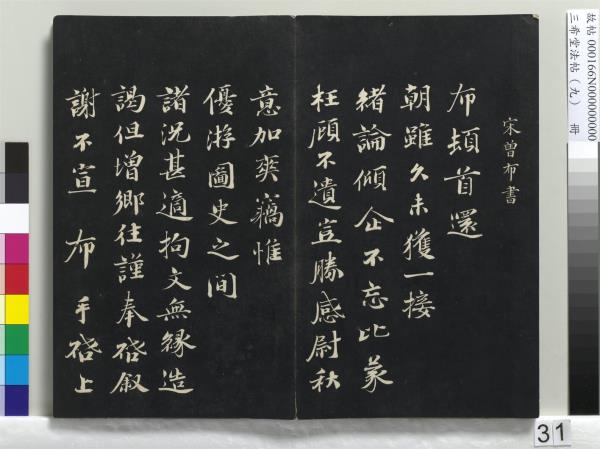 故帖000166N000000000
三希堂法帖(九) 冊
宋曾布書
布頓首還
朝雖久未獲一接
緒論傾企不忘比蒙
枉顧不遺豈勝感尉秋
意加爽竊惟
優游圖史之間
諸況甚適拘文無緣造
謁但增鄉往謹奉啓敘
謝不宣 布 手啓上
31